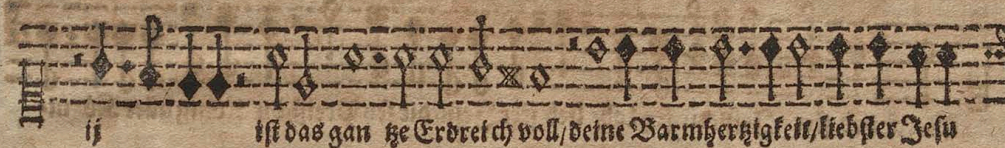 ij ist das gan tze Erdreich voll/ deine Barmhertzigkeit/ liebster Jesu